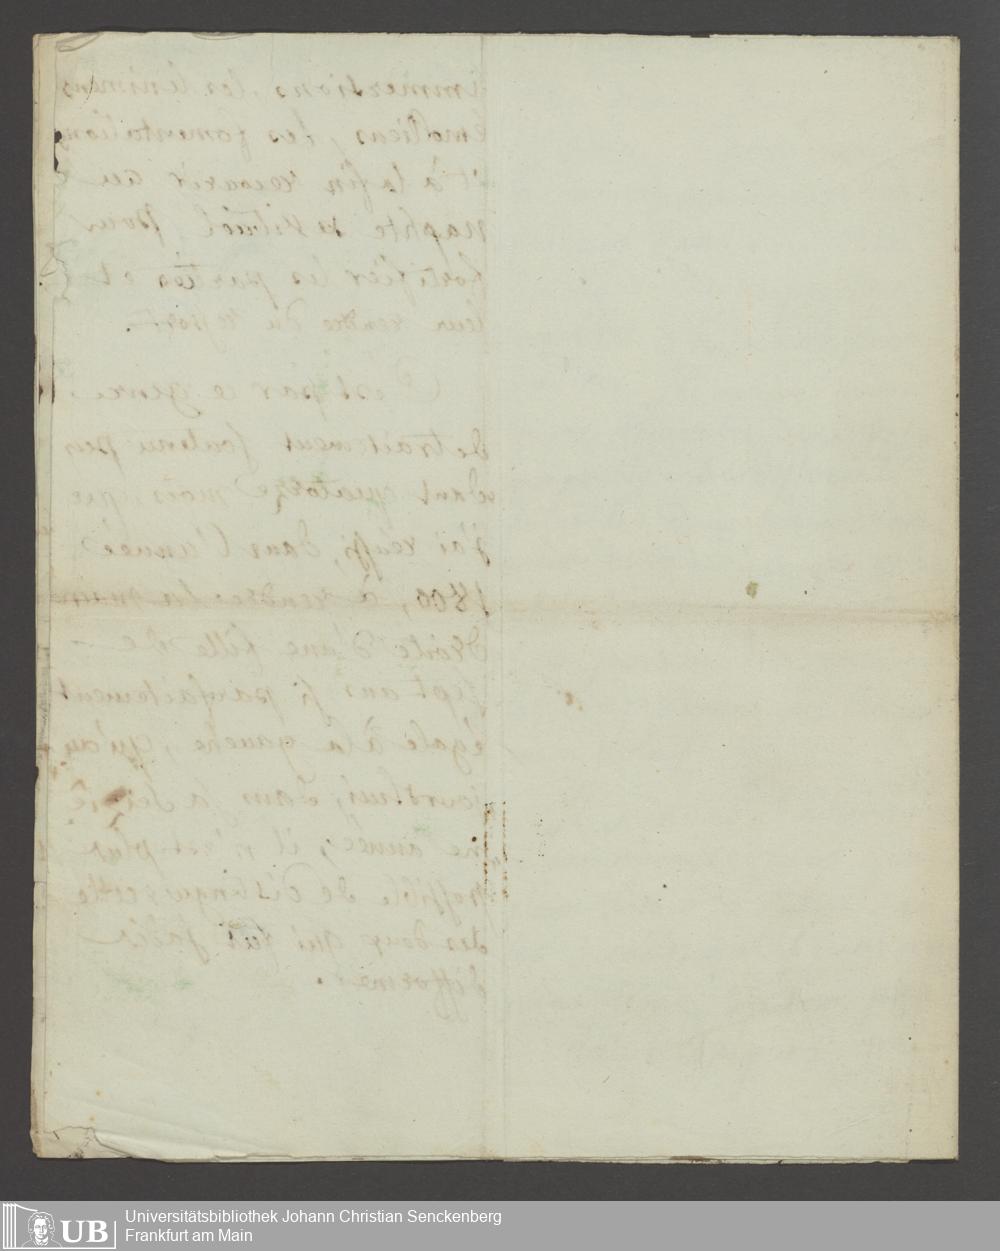 immersions, les linimens
emolliens, les fomentations
et à la fin recourir au
naphte de vitriol pour
fortifier les parties et
leur rendre du ressort.
C'est par ce genre
de traitement soutenu pen
dant quatorze mois, que
j'ai réussi, dans l'année
1800, à rendre la main
droite d'une fille de
sept ans si parfaitement
égale à la gauche, qu'au
jourdhui, dans sa
me année, il n'est plus
possible de distinguer celle
des deux qui fut jadis
difforme.
UB
Universitätsbibliothek Johann Christian Senckenberg
Frankfurt am Main